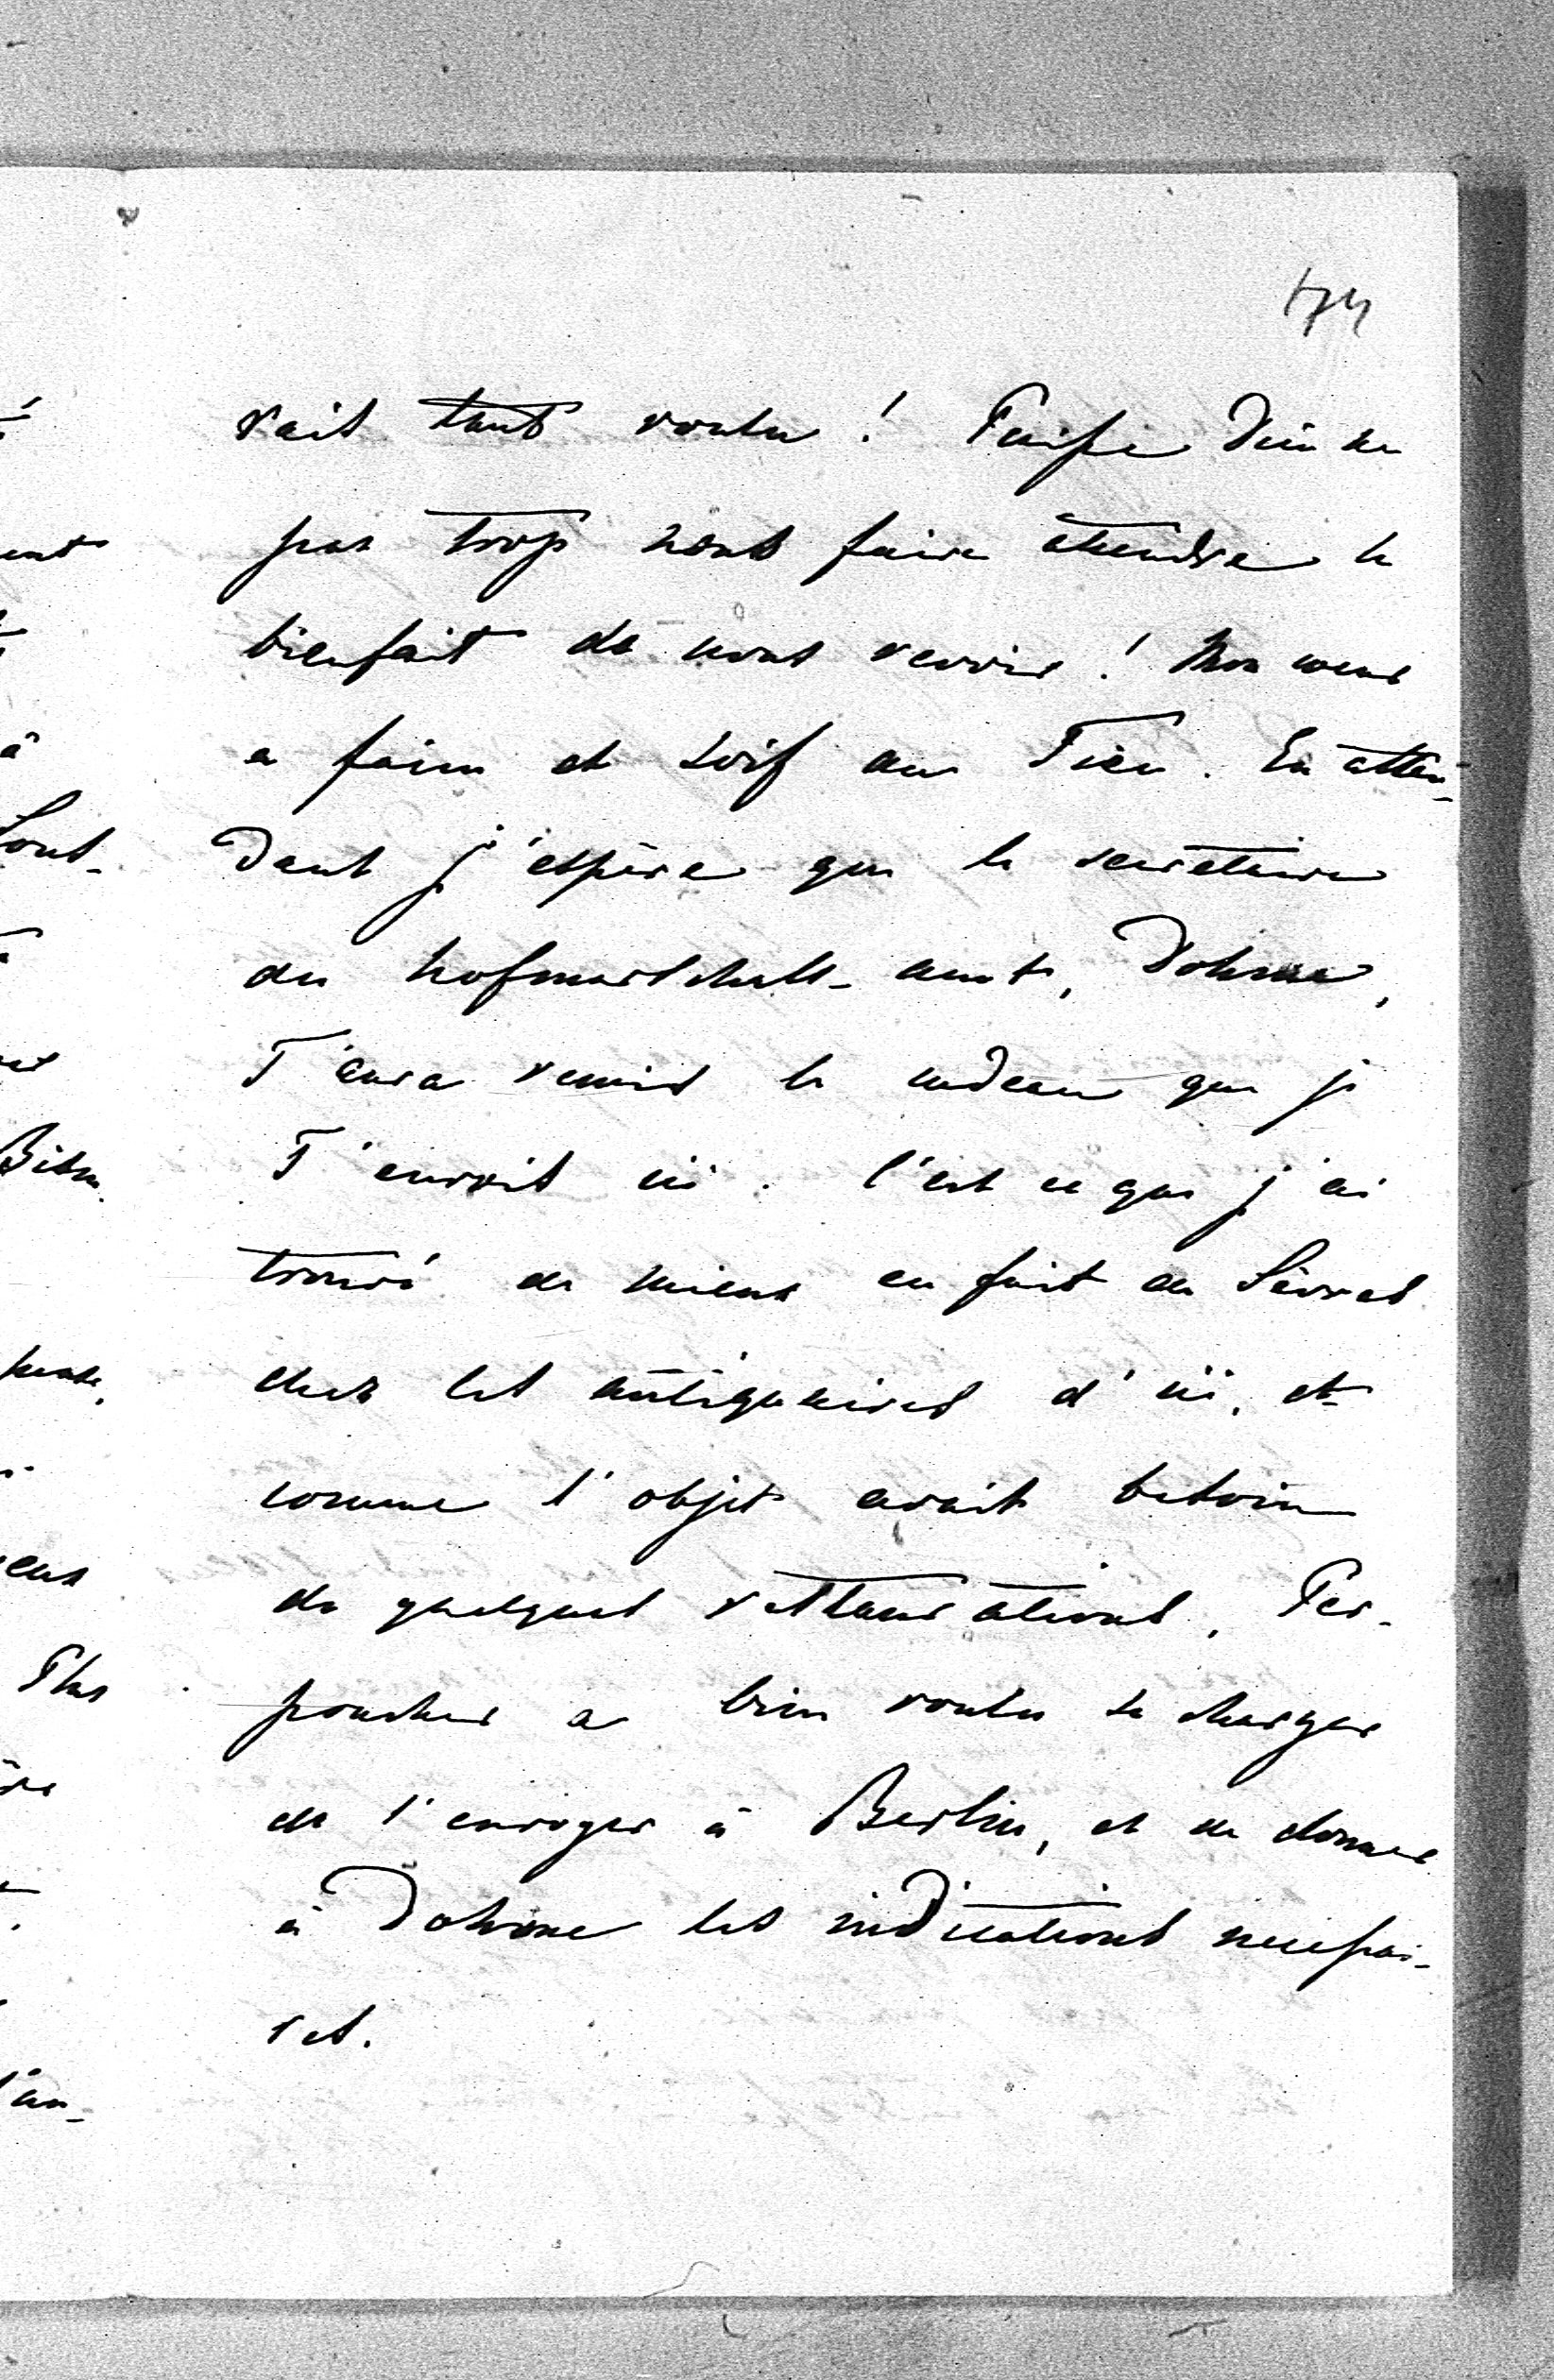 174
rait tant voulu ! Puisse Dieu ne
pas trop nous faire attendre le
bienfait de nous revoir ! Mon coeur
a faim et soif du Tien. En atten-
dant j'espère que le secrétaire
du hofmarschall-amt, Dohme,
T'aura remis le cadeau que je
T'envois ici. C'est ce que j'ai
trouvé de mieux en fait de Sèvres
chez les antiquaires d'ici, et
comme l'objet avait besoin
de quelques restaurations, Per-
poncher a bien voulu se charger
de l'envoyer à Berlin, et de donner
à Dohme les indications nécessai-
res.